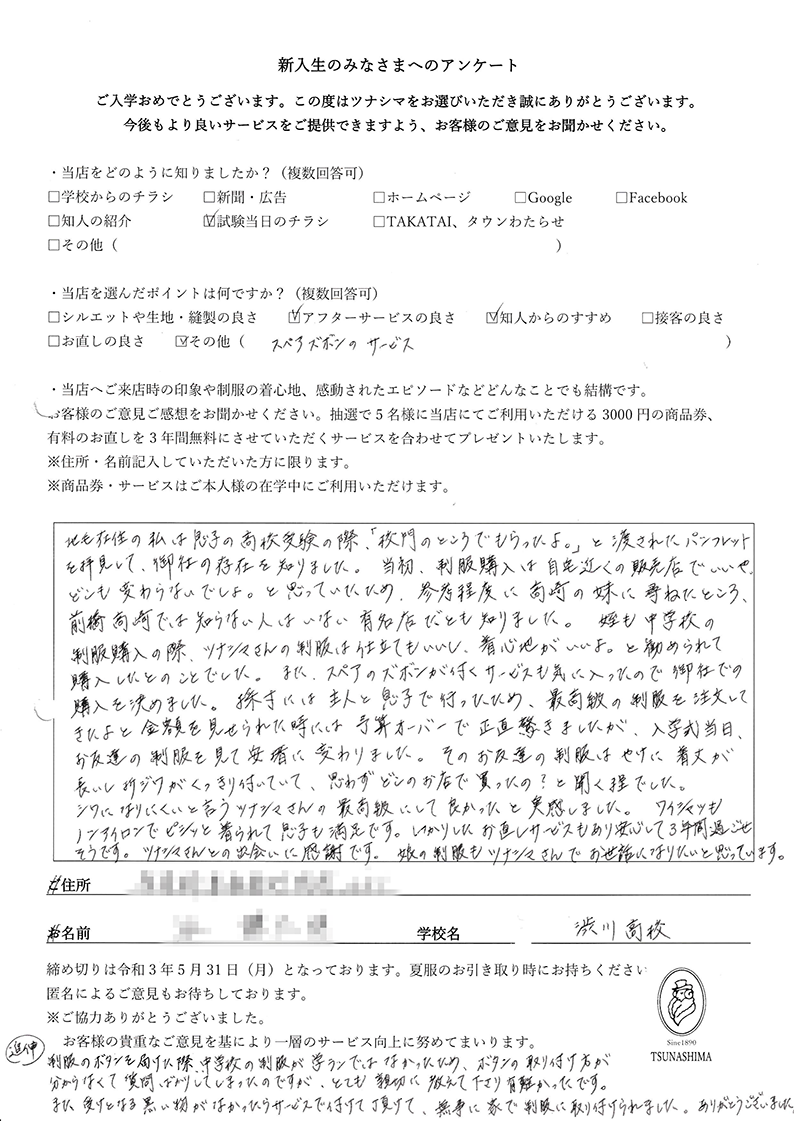 新入生のみなさまへのアンケート
ご入学おめでとうございます。この度はツナシマをお選びいただき誠にありがとうございます。
今後もより良いサービスをご提供できますよう、お客様のご意見をお聞かせください。
・当店をどのように知りましたか？（複数回答可）
□学校からのチラシ □新聞・広告 □ホームページ □Google □Facebook
□知人の紹介 ☑試験当日のチラシ □TAKATAI、タウンわたらせ
□その他（ ）
・当店を選んだポイントは何ですか？（複数回答可）
□シルエットや生地・縫製の良さ ☑アフターサービスの良さ ☑知人からのすすめ □接客の良さ
□お直しの良さ ☑その他（ スペアズボンのサービス ）
・当店へご来店時の印象や制服の着心地、感動されたエピソードなどどんなことでも結構です。
お客様のご意見ご感想をお聞かせください。抽選で5名様に当店にてご利用いただける3000円の商品券、
有料のお直しを3年間無料にさせていただくサービスを合わせてプレゼントいたします。
※住所・名前記入していただいた方に限ります。
※商品券・サービスはご本人様の在学中にご利用いただけます。
在住の私は息子の高校受験の際、「校門のところでもらったよ。」と渡されたパンフレット
を拝見して、御社の存在を知りました。当初、制服購入は自宅近くの販売店でいいや、
どこも変わらないでしょ。と思っていたため、参考程度に高崎の妹に尋ねたところ、
前橋高崎では知らない人はいない有名店だとも知りました。姪も中学校の
制服購入の際、ツナシマさんの制服は仕立てもいいし、着心地がいいよ。と勧められて
購入したとのことでした。また、スペアのズボンが付くサービスも気に入ったので御社での
購入を決めました。採寸には主人と息子で行ったため、最高級の制服を注文して
きたよと金額を見せられた時には予算オーバーで正直驚きましたが、入学式当日、
お友達の制服を見て安堵に変わりました。そのお友達の制服はやけに着丈が
長いし折ジワがくっきり付いていて、思わずどこのお店で買ったの？と聞く程でした。
シワになりにくいと言うツナシマさんの最高級にして良かったと実感しました。ワイシャツも
ノンアイロンでピシッと着られて息子も満足です。しっかりしたお直しサービスもあり安心して3年間過ごせ
そうです。ツナシマさんとの出会いに感謝です。娘の制服もツナシマさんでお世話になりたいと思っています。
住所
名前 学校名 渋川高校
締め切りは令和3年5月31日（月）となっております。夏服のお引き取り時にお持ちください
匿名によるご意見もお待ちしております。
※ご協力ありがとうございました。
お客様の貴重なご意見を基により一層のサービス向上に努めてまいります。
Since1890
TSUNASHIMA
追伸
制服のボタンを届けた際、中学校の制服が学ランではなかったため、ボタンの取り付け方が
分からなくて質問ばかりしてしまったのですが、とても親切に教えて下さり有難かったです。
また受けとなる黒い物がなかったらサービスで付けて頂けて、無事に家で制服に取り付けられました。ありがとうございました